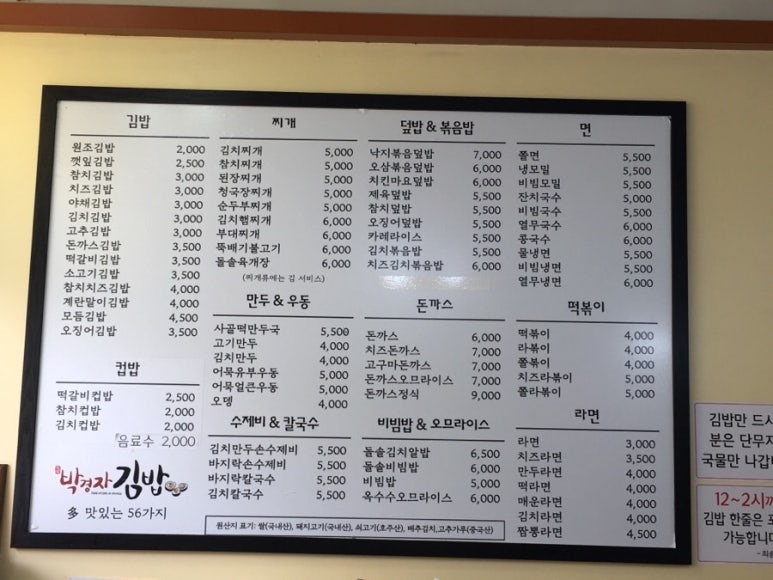 김밥
원조김밥 2,000
깻잎김밥 2,500
참치김밥 3,000
치즈김밥 3,000
야채김밥 3,000
김치김밥 3,000
고추김밥 3,000
돈까스김밥 3,500
떡갈비김밥 3,500
소고기김밥 3,500
참치치즈김밥 4,000
계란말이김밥 4,000
모듬김밥 4,500
오징어김밥 3,500
컵밥
떡갈비컵밥 2,500
참치컵밥 2,000
김치컵밥 2,000
음료수 2,000
박경자김밥
多 맛있는 56가지
찌개
김치찌개 5,000
참치찌개 5,000
된장찌개 5,000
청국장찌개 5,000
순두부찌개 5,000
김치햄찌개 6,000
부대찌개 6,000
뚝배기불고기 6,000
돌솥육개장 6,000
(찌개류에는 김 서비스)
만두 & 우동
사골떡만두국 5,500
고기만두 4,000
김치만두 4,000
어묵유부우동 5,000
어묵얼큰우동 5,000
오뎅 4,000
수제비 & 칼국수
김치만두손수제비 5,500
바지락손수제비 5,500
바지락칼국수 5,500
김치칼국수 5,500
덮밥 & 볶음밥
낙지볶음덮밥 7,000
오삼볶음덮밥 6,000
치킨마요덮밥 6,000
제육덮밥 5,500
참치덮밥 5,500
오징어덮밥 5,500
카레라이스 5,500
김치볶음밥 5,500
치즈김치볶음밥 6,000
돈까스
돈까스 6,000
치즈돈까스 7,000
고구마돈까스 7,000
돈까스오므라이스 7,000
돈까스정식 9,000
비빔밥 & 오므라이스
돌솥김치알밥 6,500
돌솥비빔밥 6,000
비빔밥 5,000
옥수수오므라이스 6,000
면
쫄면 5,500
냉모밀 5,500
비빔모밀 5,500
잔치국수 5,500
비빔국수 5,500
열무국수 6,000
콩국수 6,000
물냉면 5,500
비빔냉면 5,500
열무냉면 6,000
떡볶이
떡볶이 4,000
라볶이 4,000
쫄볶이 4,000
치즈라볶이 5,000
쫄라볶이 5,000
라면
라면 3,000
치즈라면 3,500
만두라면 4,000
떡라면 4,000
매운라면 4,000
김치라면 4,000
짬뽕라면 4,500
원산지 표기: 쌀(국내산), 돼지고기(국내산), 쇠고기(호주산), 배추김치,고추가루(중국산)
김밥만 드시
분은 단무지
국물만 나갑니
12~2시까
김밥 한줄은 포
가능합니다